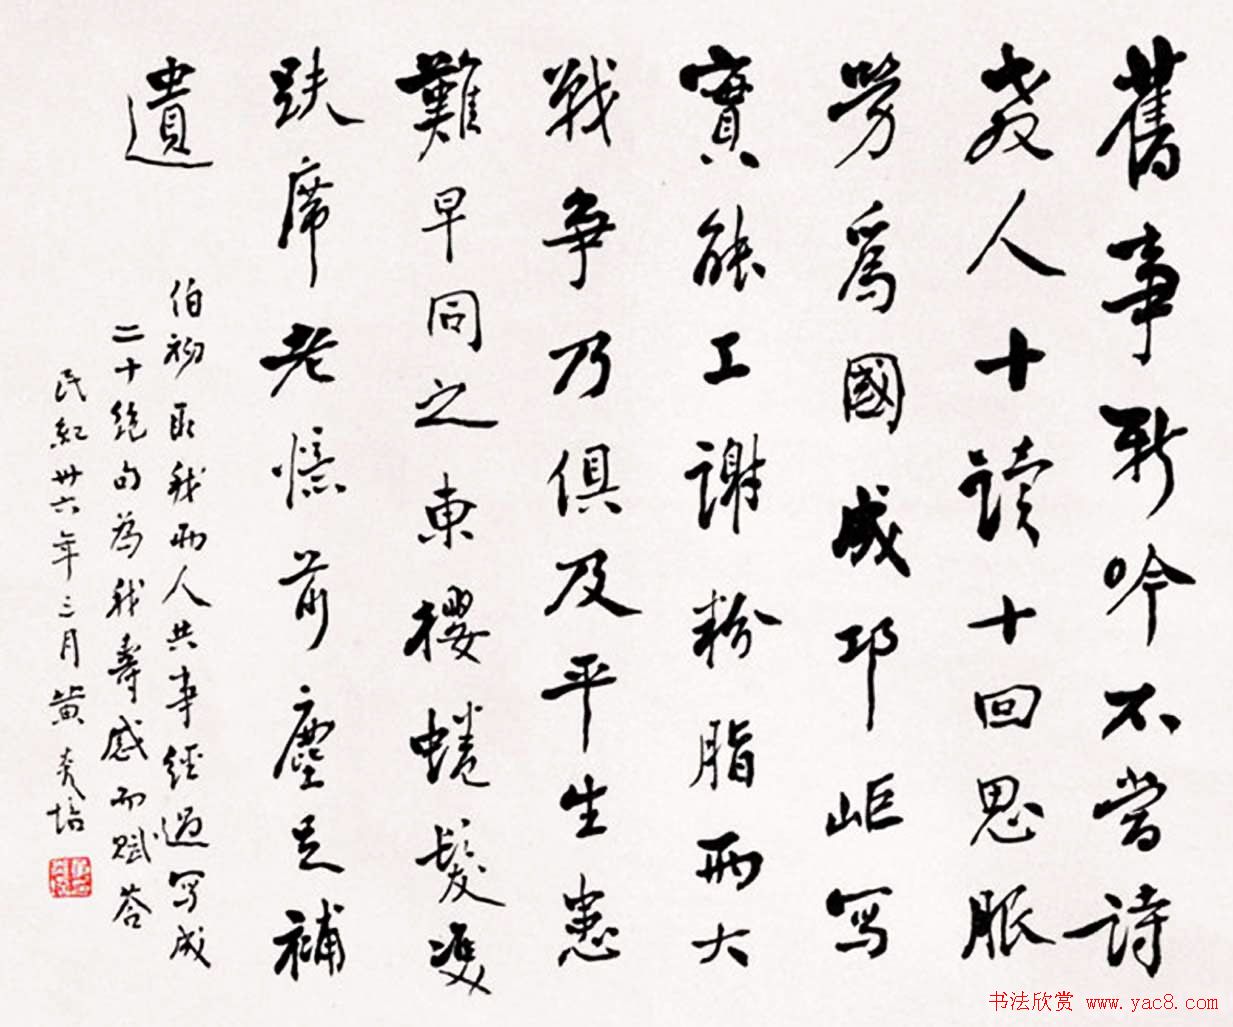 舊事新吟不當詩
教人十讀十回思服
勞爲國成邛岠寫
實能工謝粉脂兩大
戰爭乃俱及平生患
難早同之東櫻蜷髮雙
趺席老憶前塵足補
遺
伯初取我兩人共事經過写成
二十絕句為我壽感而賦答
民紀卅六年三月黃炎培
书法欣赏 www.yac8.com